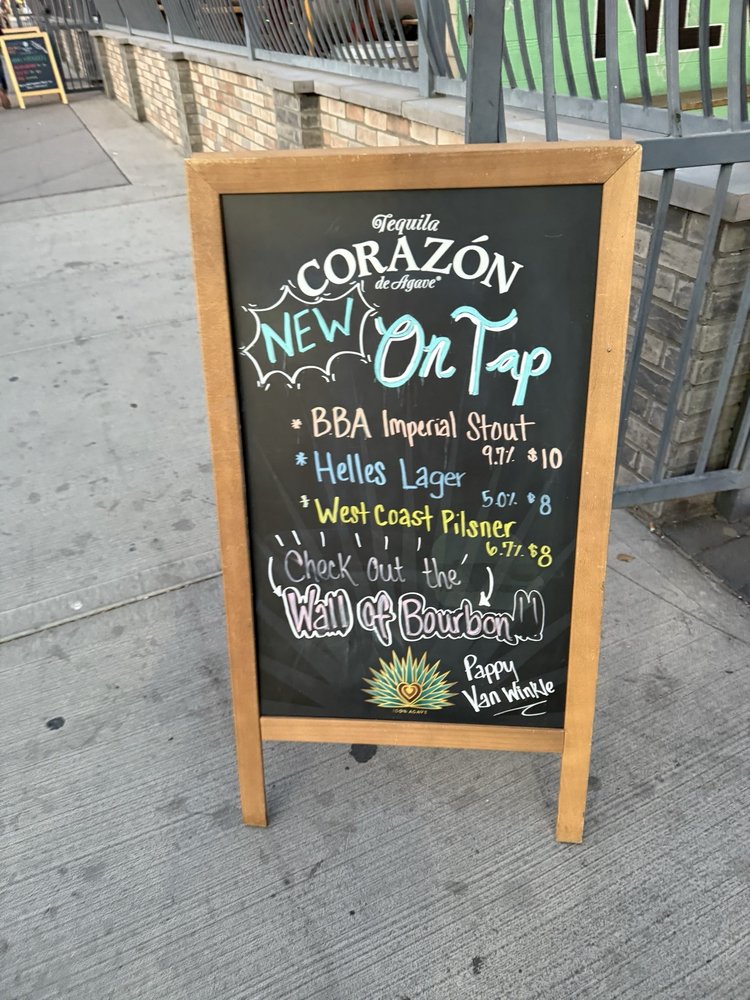 NE
Tequila
CORAZÓN
de Agave®
NEW
On Tap
* B.B.A Imperial Stout
9.7% $10
* Helles Lager
5.0% $8
* West Coast Pilsner
6.7% $8
Check Out the
Wall of Bourbon!!
Pappy
Van Winkle
100% AGAVE